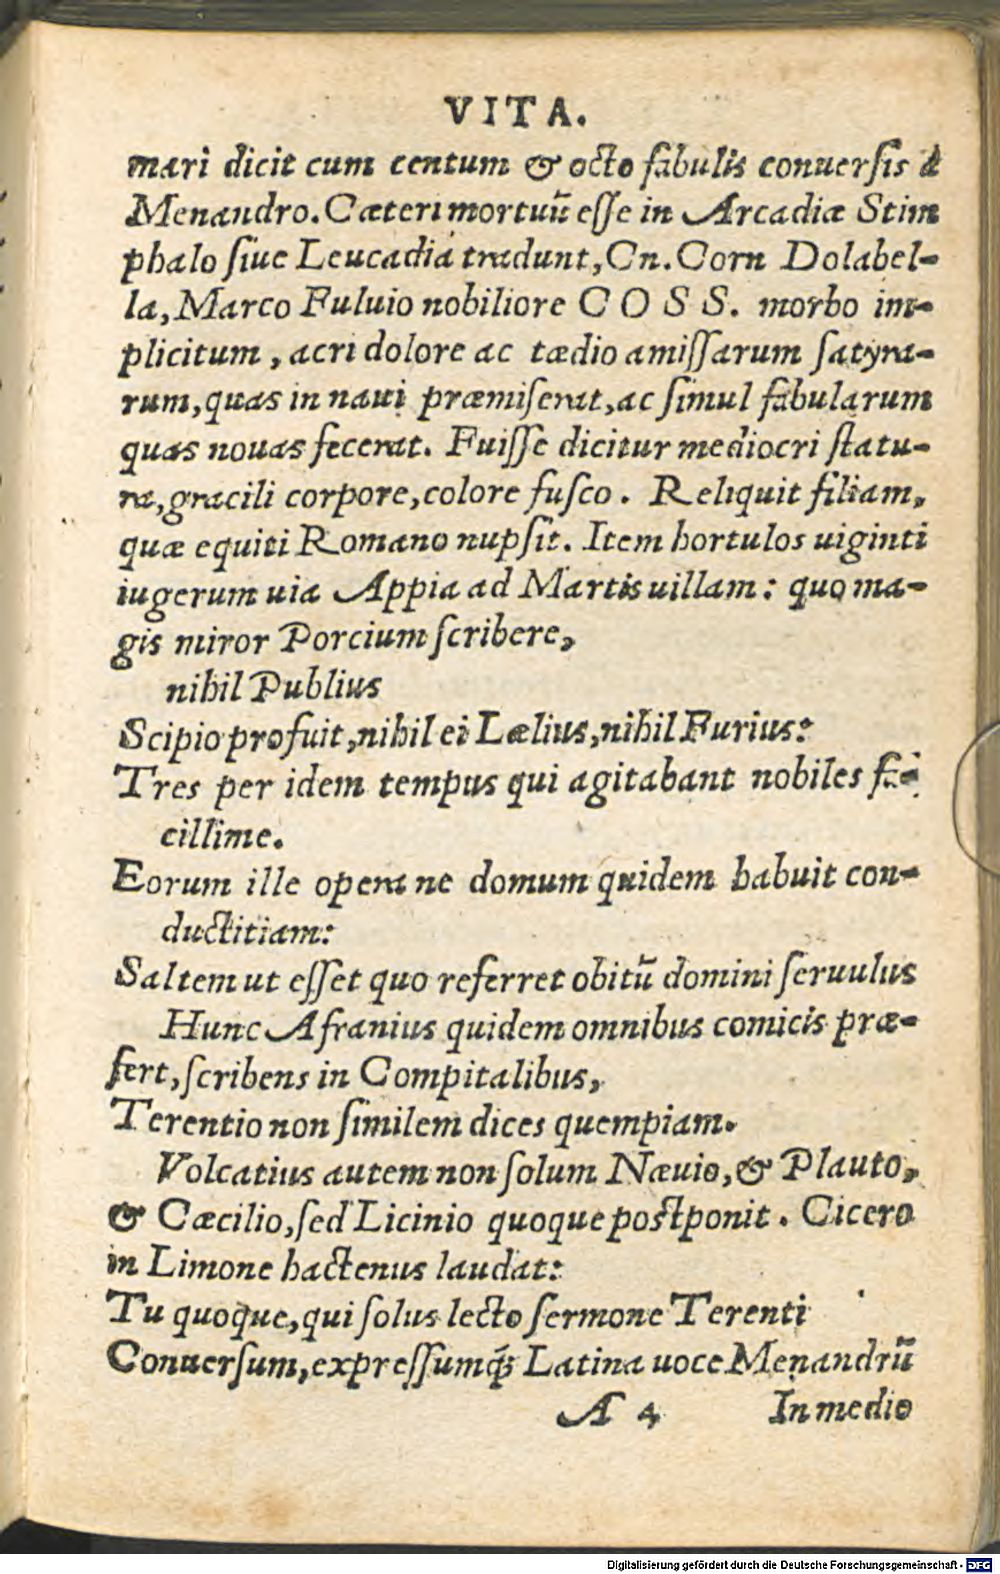 VITA.
mari dicit cum centum & octo fabulis conuersis à
Menandro. Cæteri mortuũ esse in Arcadiæ Stim
phalo siue Leucadia tradunt, Cn. Corn Dolabel-
la, Marco Fuluio nobiliore COSS. morbo im-
plicitum, acri dolore ac tædio amissarum satyra-
rum, quas in naui præmiserat, ac simul fabularum
quas nouas fecerat. Fuisse dicitur mediocri statu-
ra, gracili corpore, colore fusco. Reliquit filiam,
quæ equiti Romano nupsit. Item hortulos uiginti
iugerum uia Appia ad Martis uillam: quo ma-
gis miror Porcium scribere,
nihil Publius
Scipio profuit, nihil ei Lælius, nihil Furius:
Tres per idem tempus qui agitabant nobiles fa-
cillime.
Eorum ille opera ne domum quidem habuit con-
ductitiam:
Saltem ut esset quo referret obitũ domini seruulus
Hunc Afranius quidem omnibus comicis præ-
fert, scribens in Compitalibus,
Terentio non similem dices quempiam.
Volcatius autem non solum Næuio, & Plauto,
& Cæcilio, sed Licinio quoque postponit. Cicero
in Limone hactenus laudat:
Tu quoque, qui solus lecto sermone Terenti
Conuersum, expressumq́; Latina uoce Menandrũ
A 4 In medio
Digitalisierung gefördert durch die Deutsche Forschungsgemeinschaft - DFG